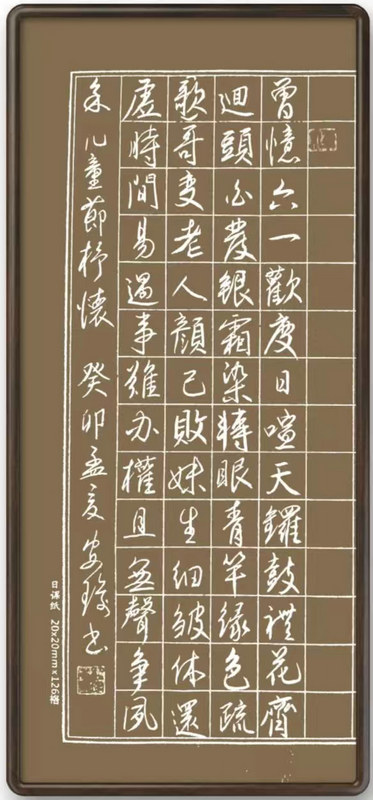 曾憶六一歡度日喧天鑼鼓禮花齊
迴頭白發銀霜染轉眼青竿緣色疏
歌哥变老人顏已敗妹生細皱体還
虛時間易過事難办權且無聲争夙
儿童節抒懷 癸卯孟夏安书
日课纸 20x20mmx126格